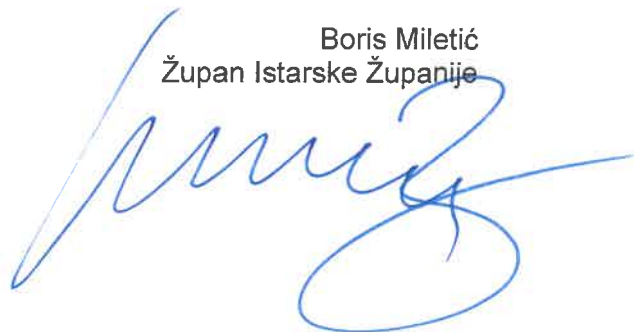 Boris Miletić
Župan Istarske Županije